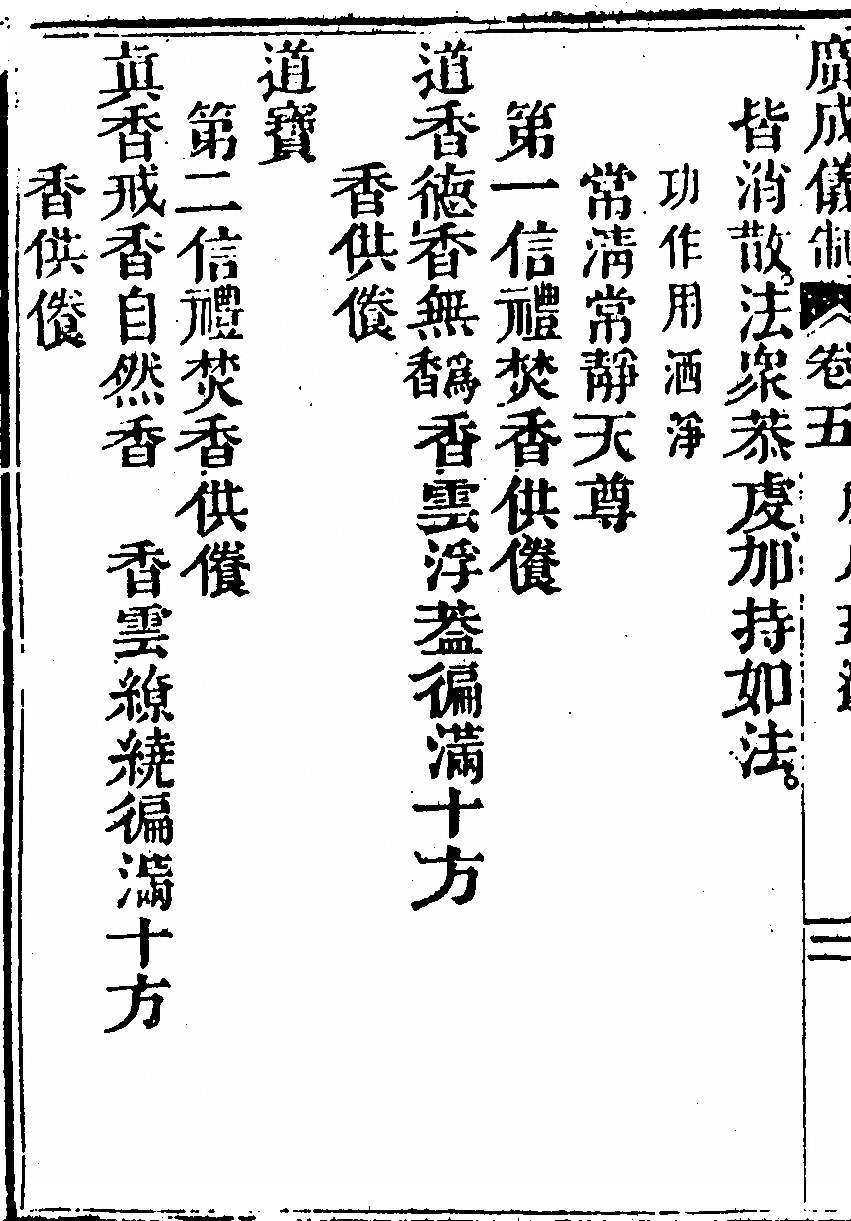 廣成儀制 卷五 三
皆消散。法衆恭虔加持如法。
功作用洒淨
常清常靜天尊
第一信禮焚香供養
道香德香無爲香香雲浮葢徧滿十方
香供養
道寶
第二信禮焚香供養
眞香戒香自然香 香雲繚繞徧滿十方
香供養